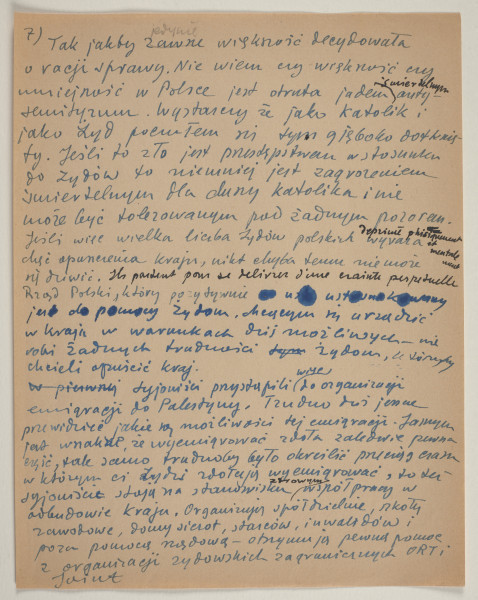 7)
jedynie
Tak jakby zawsze większość decydowała
o racji sprawy. Nie wiem czy większość czy
śmiertelnym
mniejszość w Polsce jest otruta jadem anty-
semityzmu. Wystarczy że jako katolik i
jako Żyd poczułem się tym głęboko dotknię-
ty. Jeśli to zło jest przestępstwem w stosunku
do Żydów to niemniej jest zagrożeniem
śmiertelnym dla duszy katolika i nie
może być tolerowanym pod żadnym pozorem.
Jeśli więc wielka liczba Żydów polskich wyraża
chęć opuszczenia kraju, nikt chyba temu nie może
się dziwić. Ils partent pour se délivrer d'une crainte perpetuelle
Rząd Polski, który pozytywnie ustosunkowany
jest do pomocy Żydom, chcącym się urządzić
w kraju w warunkach dziś możliwych – nie
robi żadnych trudności Żydom, którzyby
chcieli opuścić kraj.
więc
w pierwszej syjoniści przystąpili do organizacji
emigracji do Palestyny. Trudno dziś jeszcze
przewidzieć jakie są możliwości tej emigracji. Jasnym
jest wszakże, że wyemigrować zdoła zaledwie pewna
część, tak samo trudno by było określić przeciąg czasu
w którym ci Żydzi zdołają wyemigrować, to też
syjoniści stoją na stanowisku współpracy w
odbudowie kraju. Organizują spółdzielnie, szkoły
zawodowe, domy sierot, starców, inwalidów i
poza pomocą rządową – otrzymują pewną pomoc
z organizacji żydowskich zagranicznych ORT i
Joint